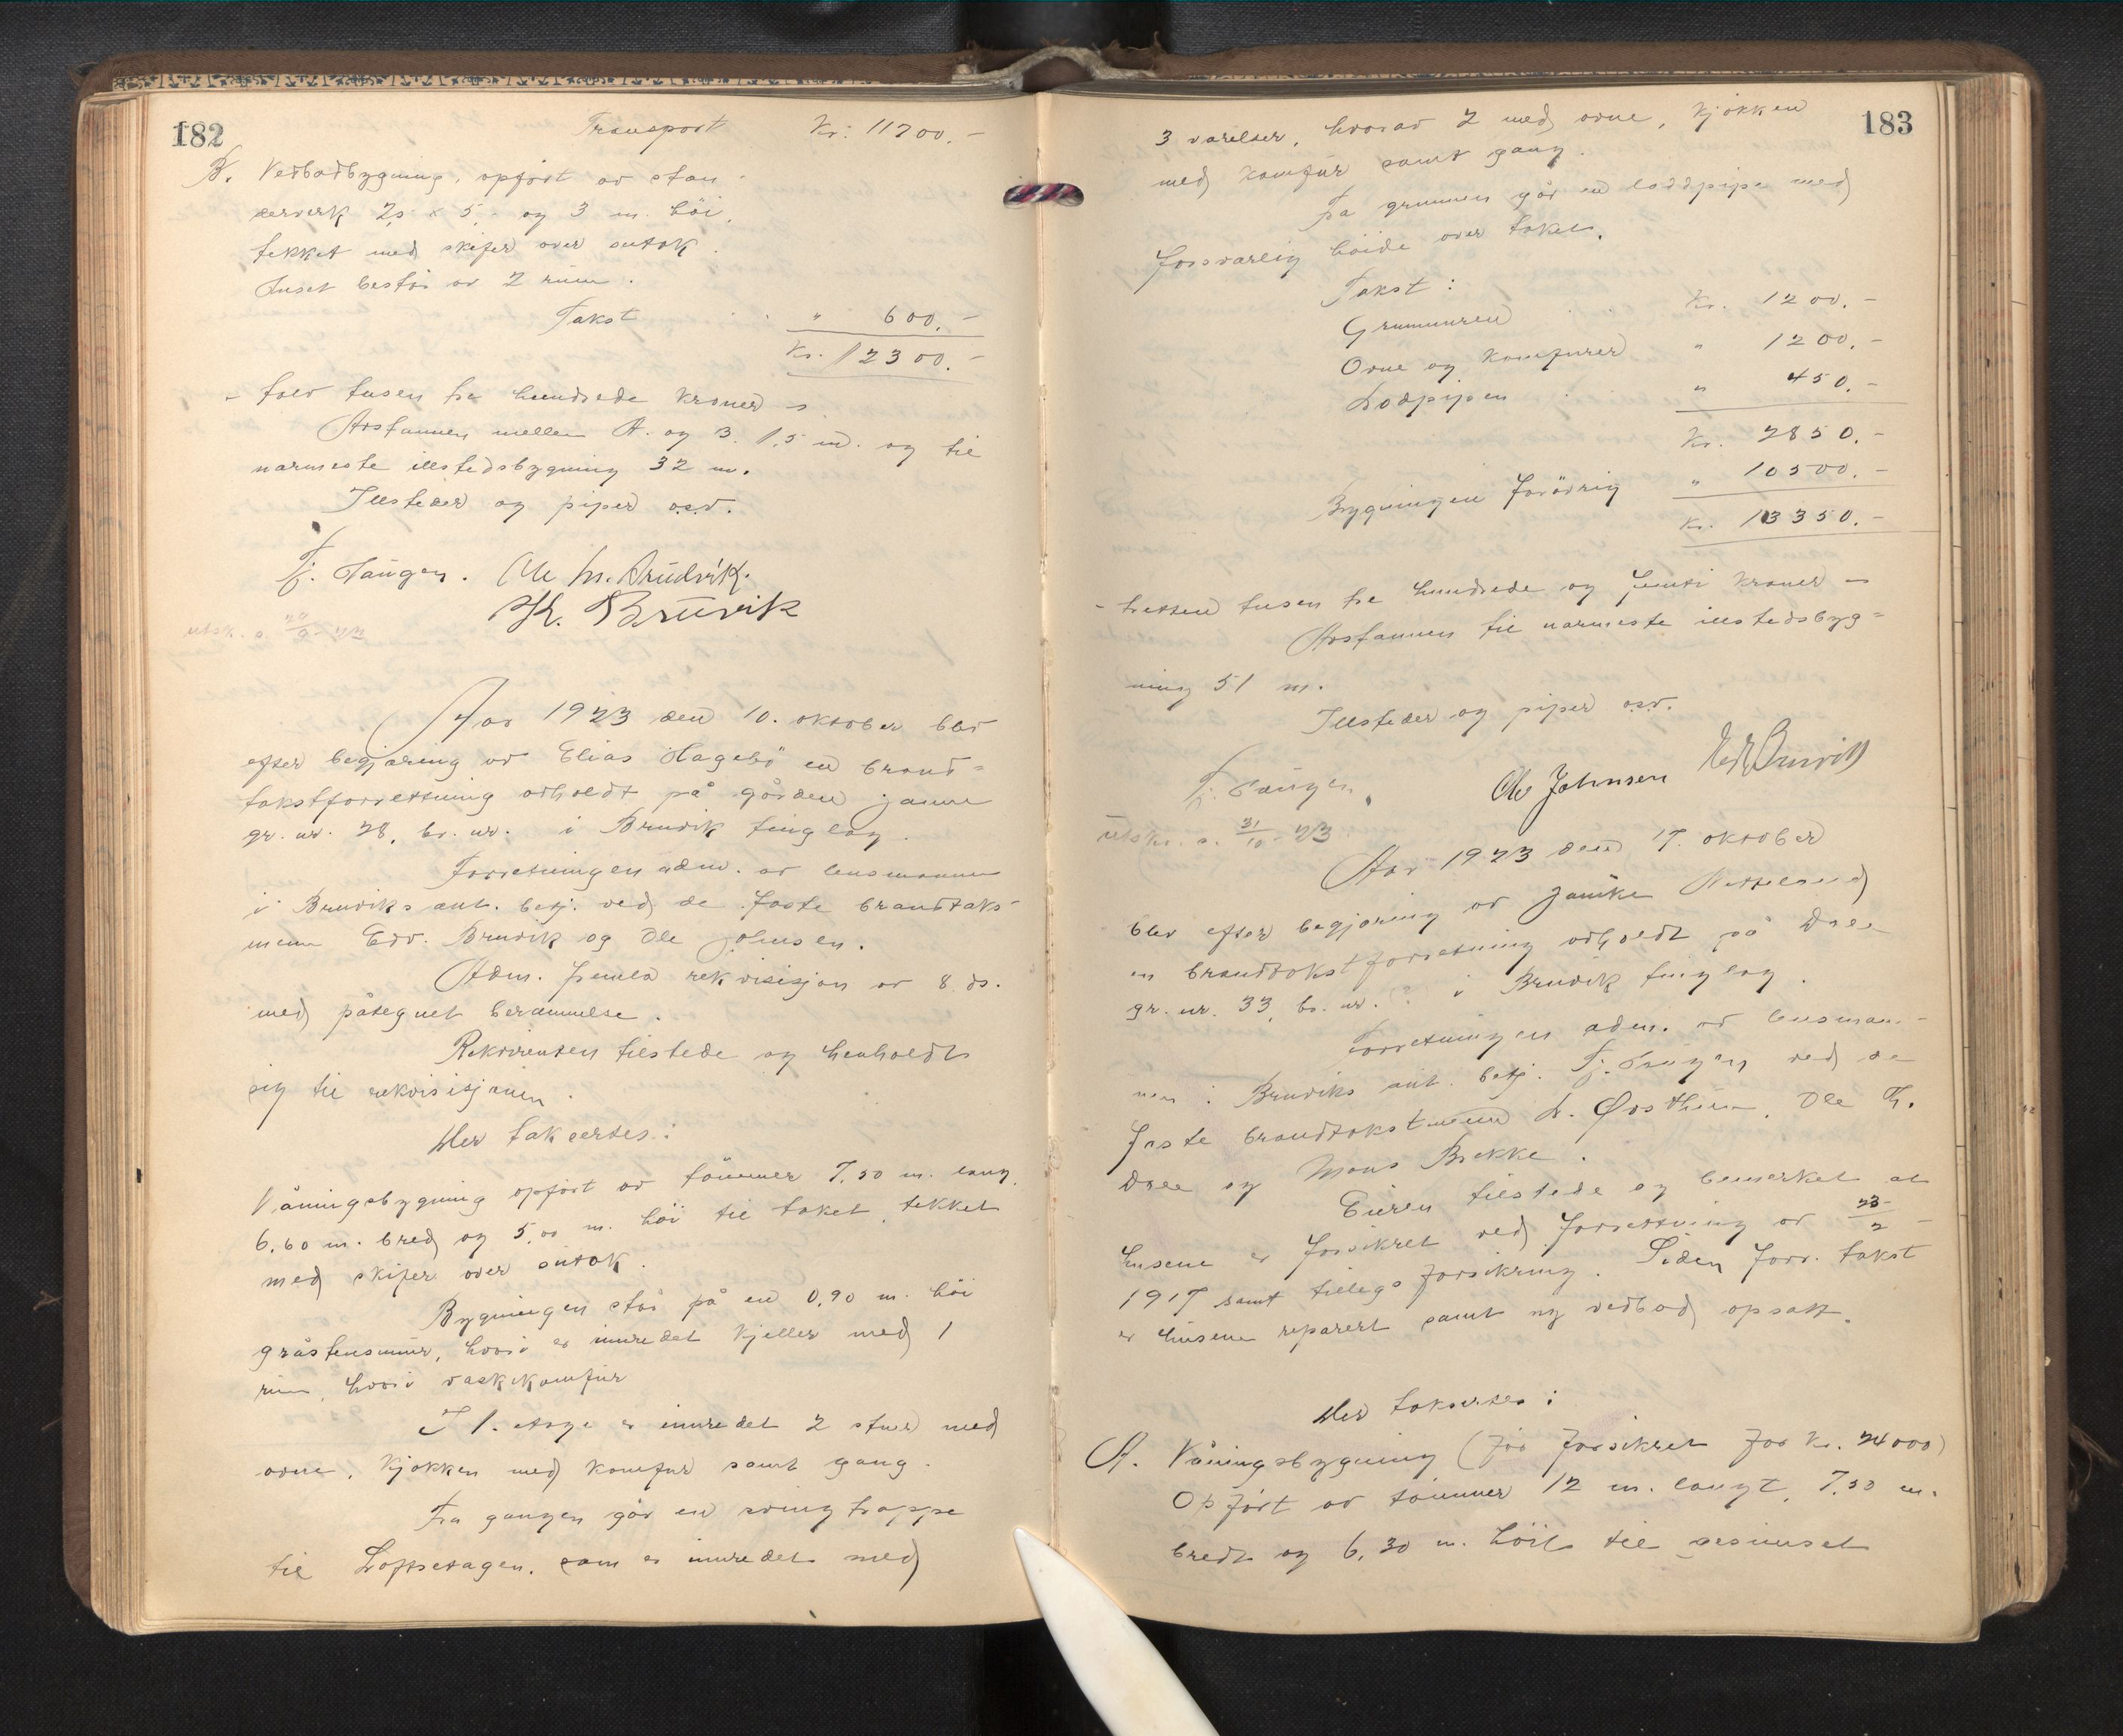 182
Transport Kr. 11700.-
B. Vedbodbygning, opført av stan-
derverk 7,5 x 5,- og 3 m. höi,
tekket med skifer over sutak.
Huset består av 2 rum.
Takst " 600.-
Kr. 12300.-
- tolv tusen tre hundrede kroner -
Avstannen mellem A. og B. 1,5 m. og til
nærmeste illstedsbygning 32 m.
Illsteder og piper osv.
Tj. Taugen. Ole M. Bruvik.
K. Bruvik
utsk. s.
Aar 1923 den 10. oktober blev
efter begjæring av Elias Hagebö en brand=
takstforretning avholdt på gården Jamne
gr. nr. 28, br. nr. i Bruvik tinglag.
Forretningen adm. av lensmannen
i Bruviks aut. betj. ved de faste brandtaks-
menn Edv. Bruvik og Ole Johnsen.
Adm. fremla rekvisisjon av 8. ds.
med påtegnet berammelse.
Rekvirenten tilstede og henholdt
sig til rekvisisjonen.
Der taksertes:
Våningsbygning opført av tömmer 7,50 m. lang,
6,60 m. bred og 5,00 m. höi til taket, tekket
med skifer over sutak.
Bygningen står på en 0,90 m. höi
gråstensmur, hvori er innredet kjeller med 1
rum, hvori vaskekomfur
I 1. etage er innredet 2 stuer med
ovne, kjøkken med komfur samt gang.
Fra gangen går en svingtrappe
til Loftsetagen, som er innredet med
183
3 værelser, hvorav 2 med ovne, kjøkken
med komfur samt gang.
Fra grunnen går en loddpipe med
forsvarlig höide over taket.
Takst:
Grunnmuren Kr. 1200.-
Ovne og komfurer " 1200.-
Lodpipen " 450.-
Kr. 2850.-
Bygningen forövrig " 10500.-
Kr. 13350.-
- tretten tusen tre hundrede og femti kroner -
Avstannen til nærmeste illstedsbyg=
ning 51 m.
Illsteder og piper osv.
Tj. Taugen. Ole Johnsen Edv Bruvik
utskr. s. 31/10-23.
Aar 1923 den 17. oktober
blev efter begjæring av Janike
en brandtakstforretning avholdt på Dale
gr. nr. 33, br. nr. i Bruvik tinglag.
Forretningen adm. av lensman-
nen i Bruviks aut. betj. Tj. Taugen ved de
faste brandtakstmenn L. Øvsthun, Ole Th.
Dale og Mons Brekke.
Eieren tilstede og bemerket at
husene er forsikret ved forretning av 23/2-
1917 samt tillegs forsikring. Siden forr. takst
er husene reparert samt ny vedbod opsatt.
Der takseres:
A. Våningsbygning (før forsikret for kr. 24000)
Opført av tömmer 12 m. langt, 7,50 m.
bredt og 6,30 m. höit til gesimset